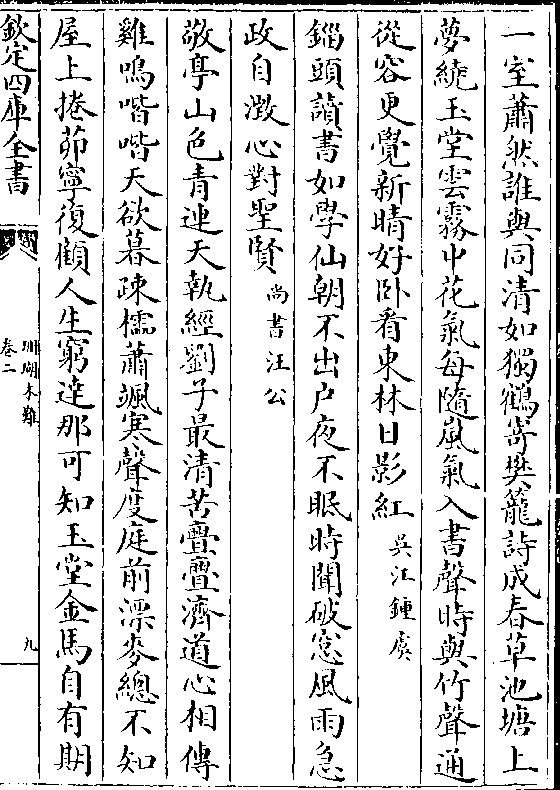 一室蕭然誰與同清如獨鶴寄樊籠詩成春草池塘上
夢繞玉堂雲霧中花氣每隨嵐氣入書聲時與竹聲通
從容更覺新晴好卧看東林日影紅 吳江鍾虞
鍿頭讀書如學仙朝不出户夜不眠時聞破窓風雨急
政自澂心對聖賢 尚書汪公
敬亭山色青連天執經劉子最清苦亹亹濟道心相傳
雞鳴喈喈天欲暮疎櫺蕭颯寒聲度庭前漂麥總不知
屋上捲茆寧復顧人生窮達那可知玉堂金馬自有期
欽定四庫全書
珊瑚木難
卷二
九